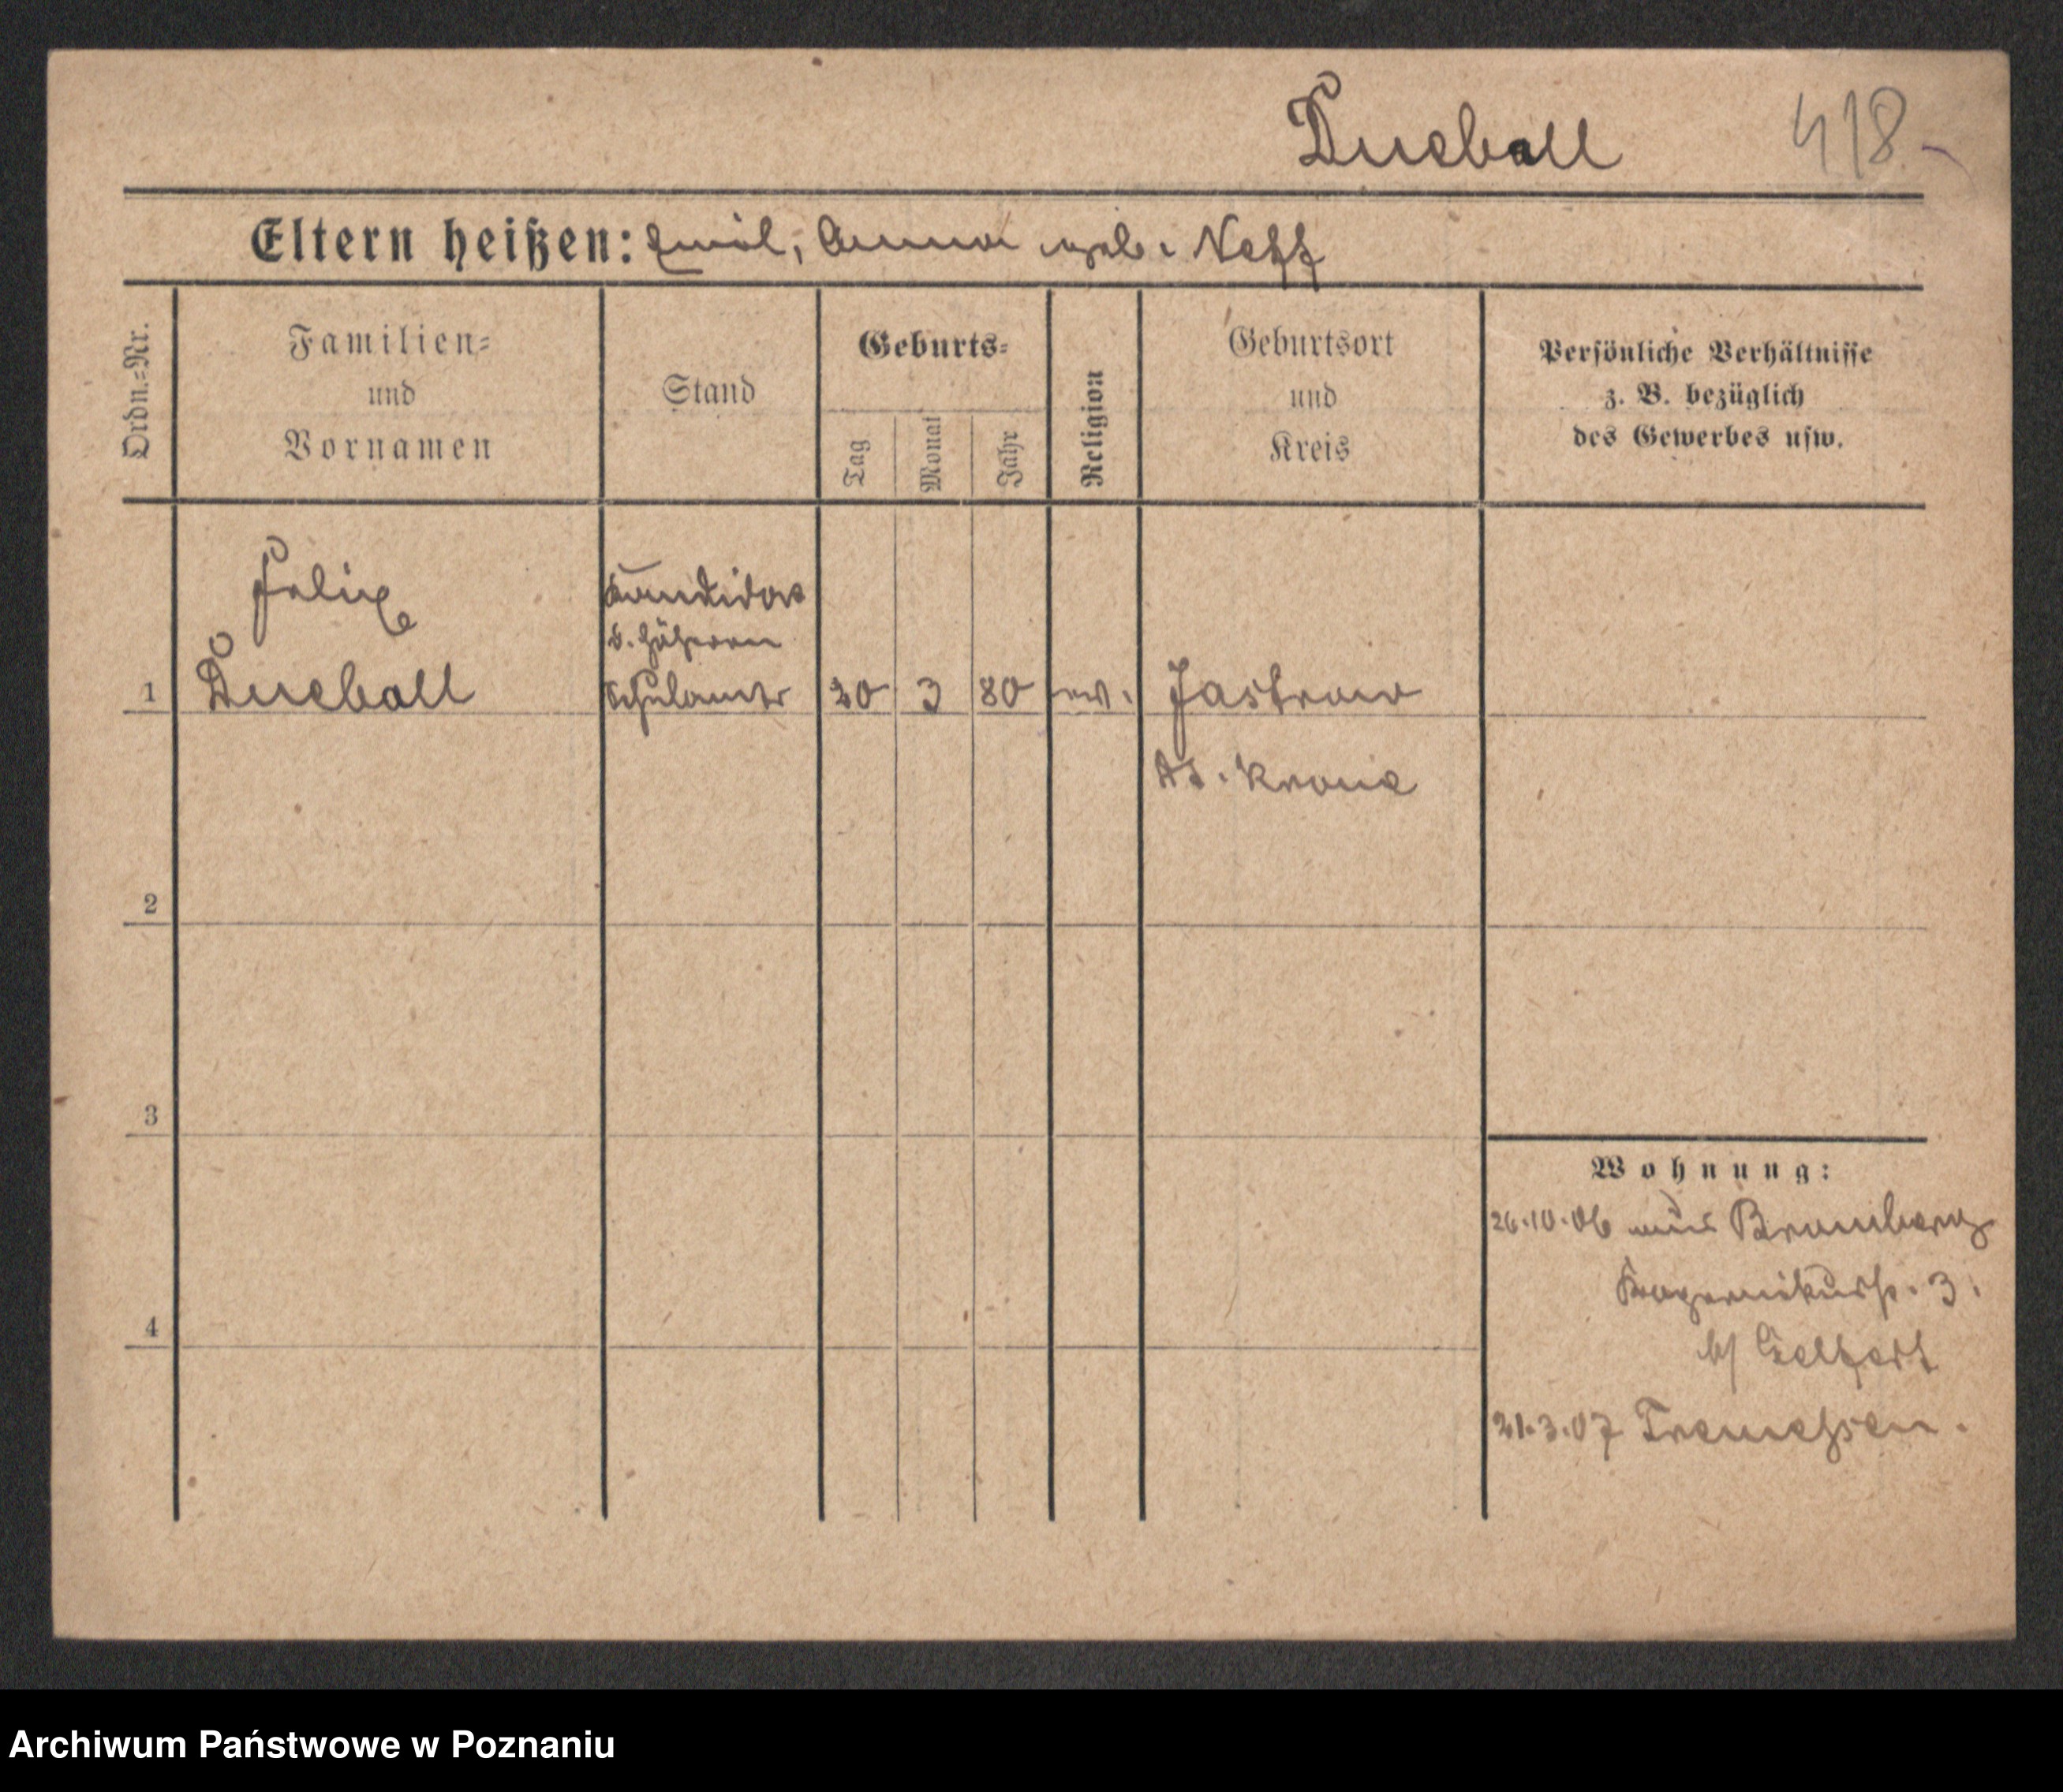 Dueball 418.
Eltern heißen: Emil, Anna geb. Neff
Ordn.=Nr.
Familien=
und
Vornamen
Stand
Geburts=
Tag
Monat
Jahr
Religion
Geburtsort
und
Kreis
Persönliche Verhältnisse
z. B. bezüglich
des Gewerbes usw.
Felix
Dueball
Kandidat
d. höheren
Schulamts
1
20 3 80 ev. Jastrow
Dt. Krone
2
3
4
Wohnung:
26.10.06 aus Bromberg
3.
b/
21.3.07 Tremessen.
Archiwum Państwowe w Poznaniu